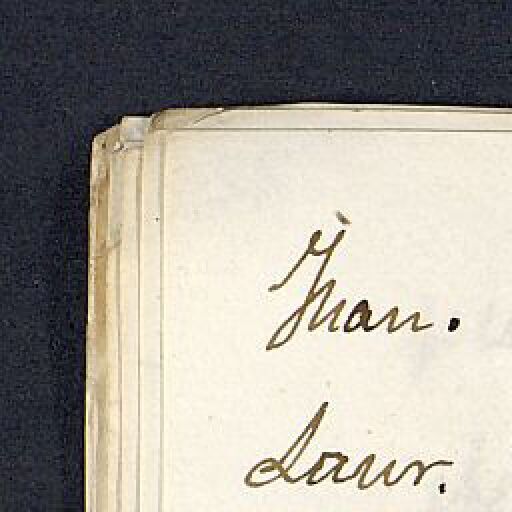 Jhan.
Laur.